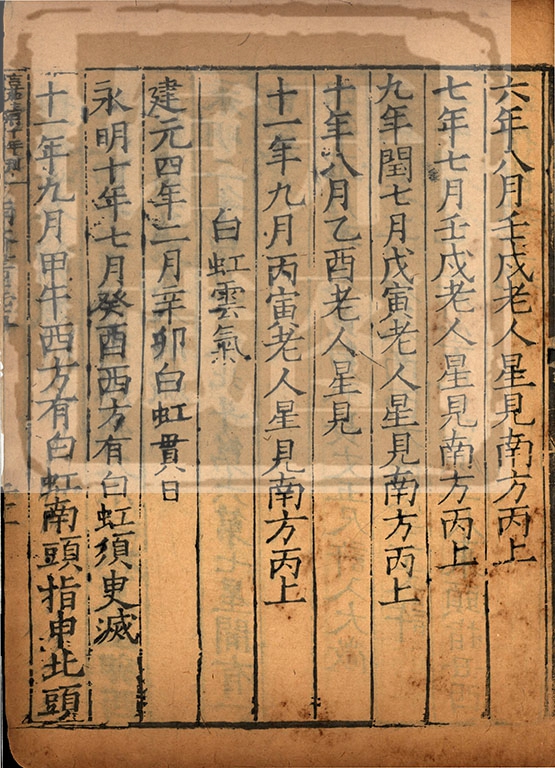 六年八月壬戌老人星見南方丙上
七年七月壬戌老人星見南方丙上
九年閏七月戊寅老人星見南方丙上
十年八月乙酉老人星見
十一年九月丙寅老人星見南方丙上
白虹雲氣
建元四年二月辛卯白虹貫日
永明十年七月癸酉西方有白虹須㬰滅
十一年九月甲午西方有白虹南頭指申北頭